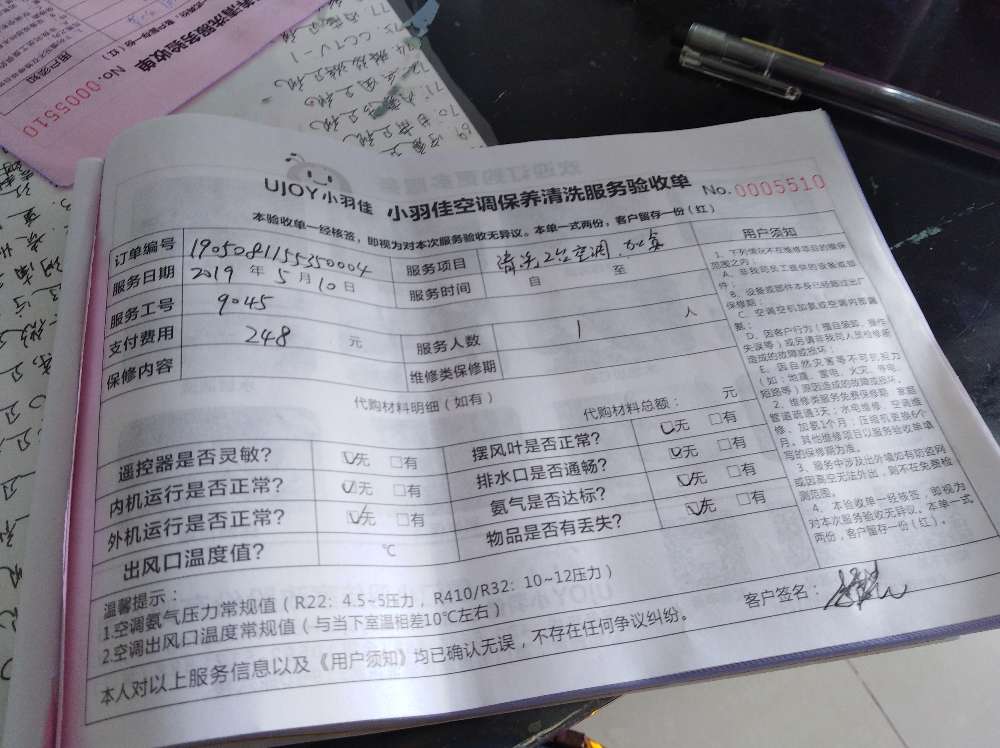 养清洗服务验收单
No.0005510
用户须知
UJOY小羽佳 小羽佳空调保养清洗服务验收单 No.0005510
本验收单一经核签，即视为对本次服务验收无异议。本单一式两份，客户留存一份（红）
订单编号 19050811555350004 服务项目 清洗2台空调
服务日期 2019 年 5 月 10 日 服务时间 自 至
服务工号 9045
支付费用 248 元 服务人数 1 人
保修内容 维修类保修期
代购材料明细（如有） 代购材料总额： 元
遥控器是否灵敏？ ☑无 □有 摆风叶是否正常？ ☑无 □有
内机运行是否正常？ ☑无 □有 排水口是否通畅？ ☑无 □有
外机运行是否正常？ ☑无 □有 氨气是否达标？ ☑无 □有
出风口温度值？ ℃ 物品是否有丢失？ ☑无 □有
温馨提示：
1.空调氨气压力常规值（R22：4.5~5压力，R410/R32：10~12压力）
2.空调出风口温度常规值（与当下室温相差10℃左右）
本人对以上服务信息以及《用户须知》均已确认无误，不存在任何争议纠纷。 客户签名：
用户须知
1、下列情况不在维修项目的质保
范围之内：
A、非我司员工提供的设备或部
件；
B、设备或部件本身已经超过出厂
保修期；
C、空调空机加氨或空调内部漏
氨；
D、因客户行为（擅自装卸、操作
失误等）或另请非我司人员检修后
造成的故障或损坏；
E、因自然灾害等不可抗拒力
（如：地震、雷电、火灾、停电、
短路等）原因造成的故障或损坏。
2、维修类服务免费保修期：家庭
管道疏通3天；水电维修、空调维
修、加氨1个月；压缩机更换6个
月。其他维修项目以服务验收单填
写的保修期为准。
3、服务中涉及出外墙如有防盗网
或因高空无法外出，则不在免费检
测范围。
4、本验收单一经核签，即视为
对本次服务验收无异议。本单一式
两份，客户留存一份（红）。